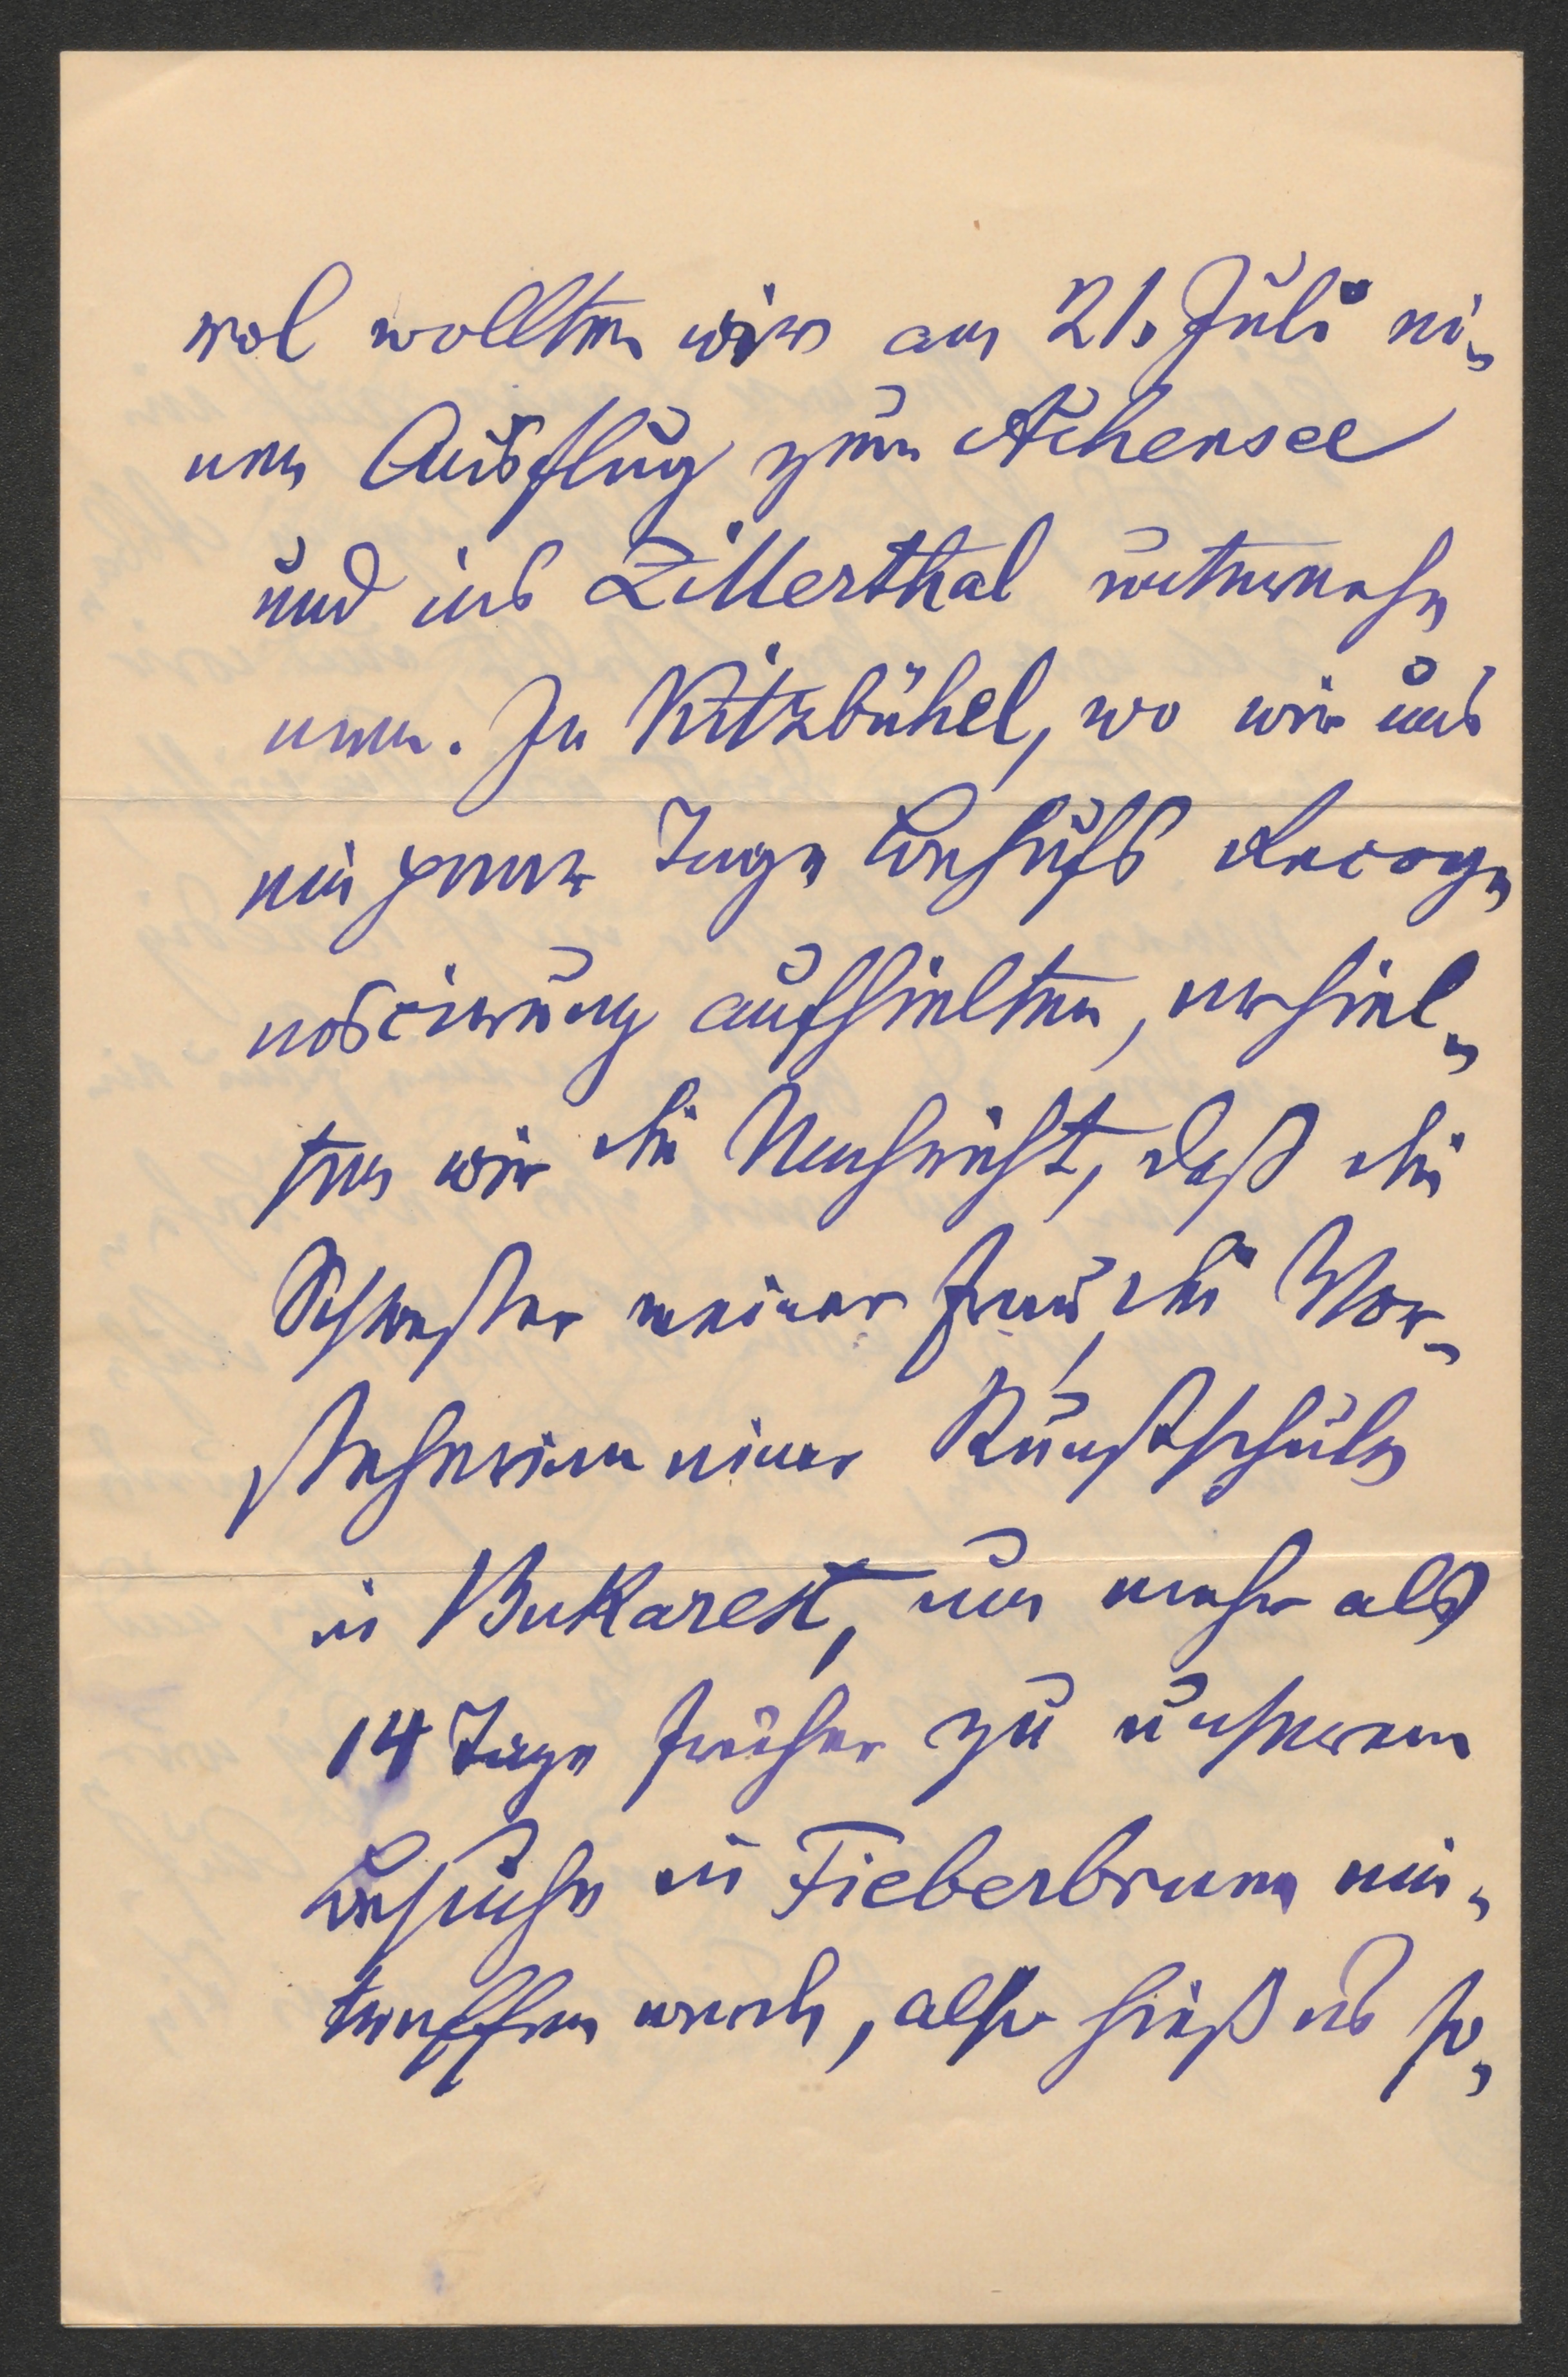 wol wollten wir am 21. Juli ei-
nen Ausflug zum Achensee
und ins Zillerthal unterneh-
men. In Kitzbühel, wo wir uns
ein paar Tage behufs Recog-
noscirung aufhielten, erhiel-
ten wir die Nachricht, daß die
Schwester meiner Frau, die Vor-
steherin einer Kunstschule
in Bukarest, um mehr als
14 Tage früher zu unserem
Besuche in Fieberbrunn ein-
treffen werde, also hieß es so-